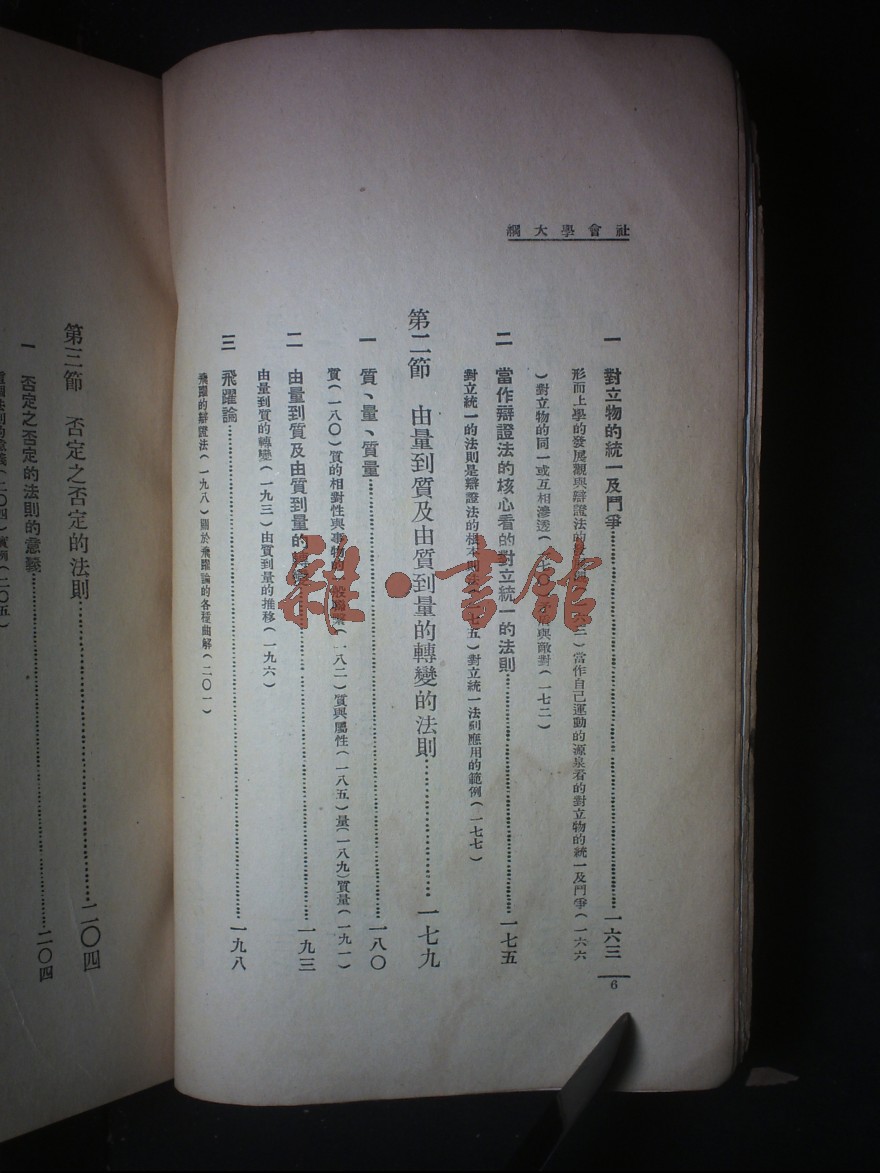 社會學大綱
一 對立物的統一及鬥爭……一六三
形而上學的發展觀與辯證法的 三)當作自己運動的源泉看的對立物的統一及鬥爭(一六六
)對立物的同一或互相滲透(一七〇) 與敵對(一七二)
二 當作辯證法的核心看的對立統一的法則……一七五
對立統一的法則是辯證法的根本 (一七五)對立統一法則應用的範例(一七七)
第二節 由量到質及由質到量的轉變的法則……一七九
一 質、量、質量……一八〇
質(一八〇)質的相對性與事物的 (一八二)質與屬性(一八五)量(一八九)質量(一九一)
二 由量到質及由質到量的 ……一九三
由量到質的轉變(一九三)由質到量的推移(一九六)
三 飛躍論……一九八
飛躍的辯證法(一九八)關於飛躍論的各種曲解(二〇一)
6
第三節 否定之否定的法則……二〇四
一 否定之否定的法則的意義……二〇四
(二〇四)實例(二〇五)
雜·書館